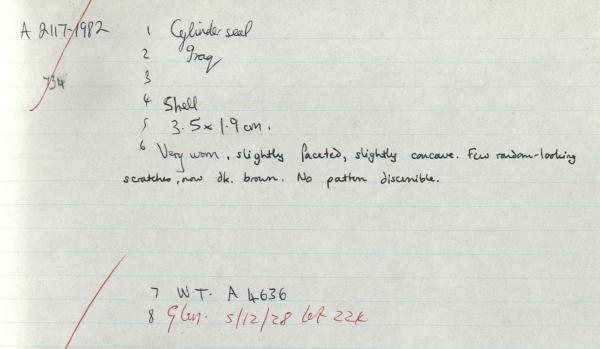 A 2117-1982 1 Cylinder seal
2 Iraq
734 3
4 Shell
5 3.5 x 1.9 cm.
6 Very worn, slightly faceted, slightly concave. Few random-looking
scratches, now dk. brown. No pattern discernible.
7 W.T. A 4636
8 5/12/28 lot 22k